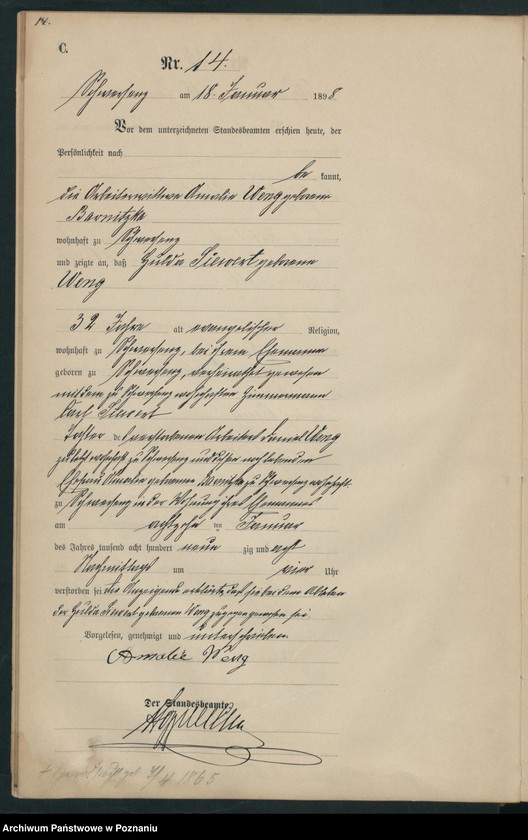 14.
C.
Nr. 14.
Schwersenz am 18. Januar 1898
Vor dem unterzeichneten Standesbeamten erschien heute, der
Persönlichkeit nach
be kannt,
die Arbeiterwittwe Amalie Weng geborene
Barnitzke
wohnhaft zu Schwersenz
und zeigte an, daß Hulda Siewert geborene
Weng
32 Jahre alt evangelischer Religion,
wohnhaft zu Schwersenz, bei ihrem Ehemanne
geboren zu Schwersenz, verheirathet gewesen
mit dem zu Schwersenz wohnhaften Zimmermann
Carl Siewert
Tochter des verstorbenen Arbeiters Daniel Weng
zuletzt wohnhaft zu Schwersenz und dessen noch lebenden
Ehefrau Amalie geborenen zu Schwersenz wohnhaft
zu Schwersenz in der Wohnung ihres Ehemannes
am achtzehn ten Januar
des Jahres tausend acht hundert neun zig und acht
Nachmittags um vier Uhr
verstorben sei die Anzeigende erklärte, daß sie bei dem Ableben
der Hulda Siewert geborenen Weng zugegen gewesen sei.
Vorgelesen, genehmigt und unterschrieben.
Amalie Weng
Der Standesbeamte.
1865
Archiwum Państwowe w Poznaniu